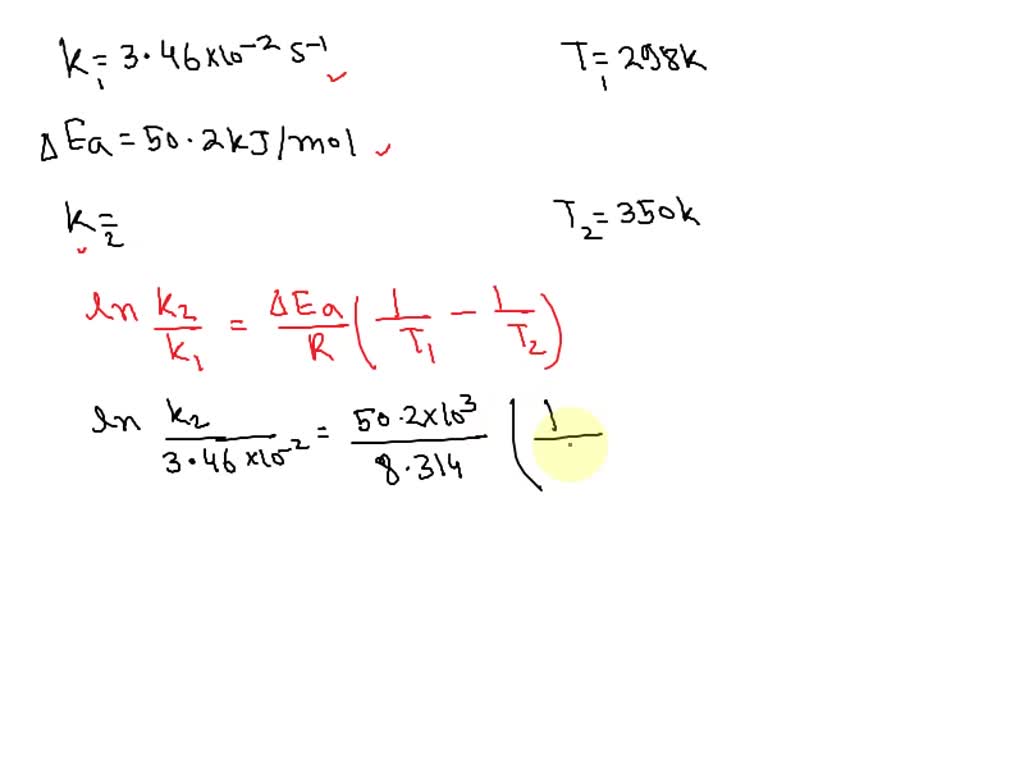 K₁ = 3.46×10⁻² s⁻¹ T₁ = 298K
ΔEa = 50.2kJ/mol
K₂ = T₂ = 350K
ln K₂/K₁ = ΔEa/R (1/T₁ − 1/T₂)
ln K₂/3.46×10⁻² = 50.2×10³/8.314 (1/